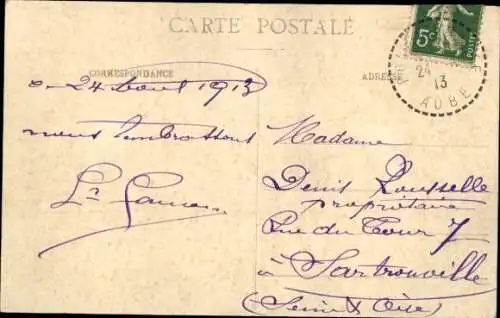 CARTE POSTALE
CORRESPONDANCE
ADRESSE
5c
POSTES
24
13
AUBE
24 Aout 1913
nous embrassons
Madame
Denis Rousselle
propriétaire
Rue du Tour 7
à Sartrouville
(Seine & Oise)